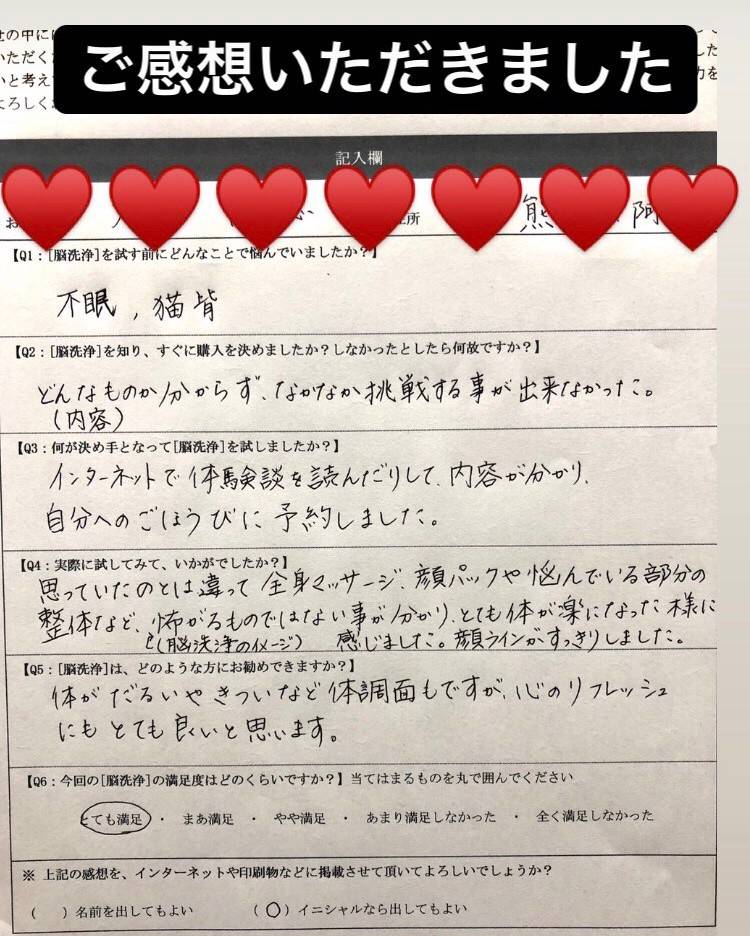 ご感想いただきました
せの中に
いただく
した
いと考え
力を
よろしく
記入欄
お
所 熊 阿
【Q1：[脳洗浄]を試す前にどんなことで悩んでいましたか？】
不眠，猫背
【Q2：[脳洗浄]を知り、すぐに購入を決めましたか？しなかったとしたら何故ですか？】
どんなものか分からず、なかなか挑戦する事が出来なかった。
（内容）
【Q3：何が決め手となって[脳洗浄]を試しましたか？】
インターネットで体験談を読んだりして、内容が分かり、
自分へのごほうびに予約しました。
【Q4：実際に試してみて、いかがでしたか？】
思っていたのとは違って全身マッサージ、顔パックや悩んでいる部分の
整体など、怖がるものではない事が分かり、とても体が楽になった様に
（脳洗浄のイメージ） 感じました。顔ラインがすっきりしました。
【Q5：[脳洗浄]は、どのような方にお勧めできますか？】
体がだるいやきついなど体調面もですが、心のリフレッシュ
にもとても良いと思います。
【Q6：今回の[脳洗浄]の満足度はどのくらいですか？】当てはまるものを丸で囲んでください
とても満足 ・ まあ満足 ・ やや満足 ・ あまり満足しなかった ・ 全く満足しなかった
※ 上記の感想を、インターネットや印刷物などに掲載させて頂いてよろしいでしょうか？
（ ）名前を出してもよい （○）イニシャルなら出してもよい